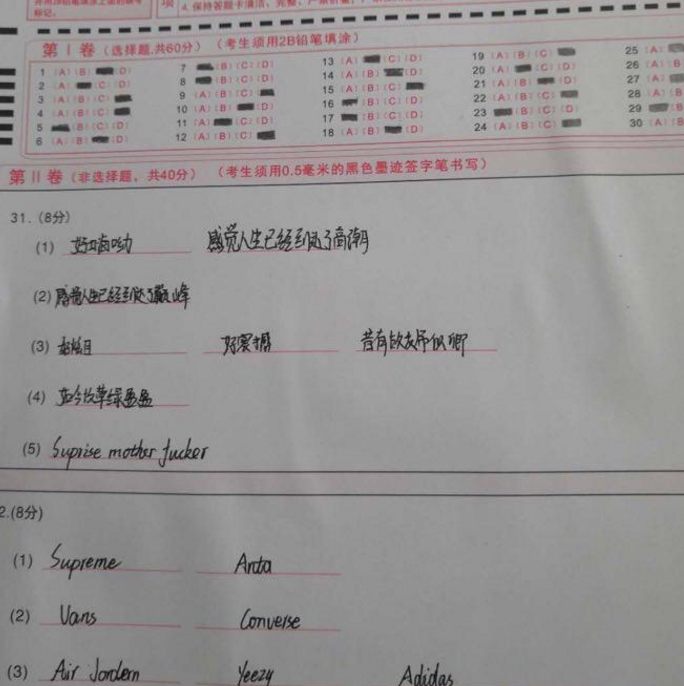 标记。
项 4.保持答题卡清洁、完整,严禁折叠,
第Ⅰ卷(选择题,共60分)(考生须用2B铅笔填涂)
1 (A)(B) (D) 7 (B)(C)(D) 13 (A) (C)(D) 19 (A)(B)(C) 25 (A)
2 (A) (C)(D) 8 (B)(C)(D) 14 (A)(B) (D) 20 (A) (C)(D) 26 (A)(B
3 (A)(B)(C) 9 (A)(B)(C) 15 (A)(B)(C) 21 (A)(B) (D) 27 (A)
4 (A)(B)(C) 10 (A)(B) (D) 16 (B)(C)(D) 22 (A)(B)(C) 28 (A)(B
5 (B)(C)(D) 11 (A) (C)(D) 17 (B)(C)(D) 23 (B)(C)(D) 29 (B
6 (A)(B) (D) 12 (A)(B)(C) 18 (A)(B) (D) 24 (A)(B)(C) 30 (A)(B
第Ⅱ卷(非选择题,共40分)(考生须用0.5毫米的黑色墨迹签字笔书写)
31.(8分)
(1) 好嗨呦 感觉人生已经到达了高潮
(2) 感觉人生已经到达了巅峰
(3) 好寂寞 昔有故友
(4) 如今坟草绿
(5) Suprise mother fucker
2.(8分)
(1) Supreme Anta
(2) Vans Converse
(3) Air Jordern Yeezy Adidas